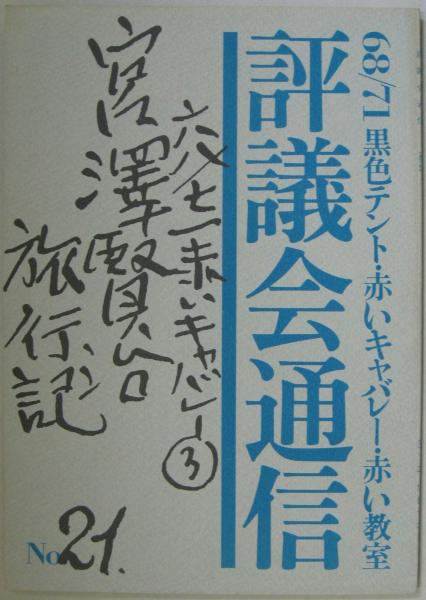 68/71 黒色テント・赤いキャバレー・赤い教室
評議会通信
六八七一赤いキャバレー③
宮澤賢治
旅行記
No. 21.